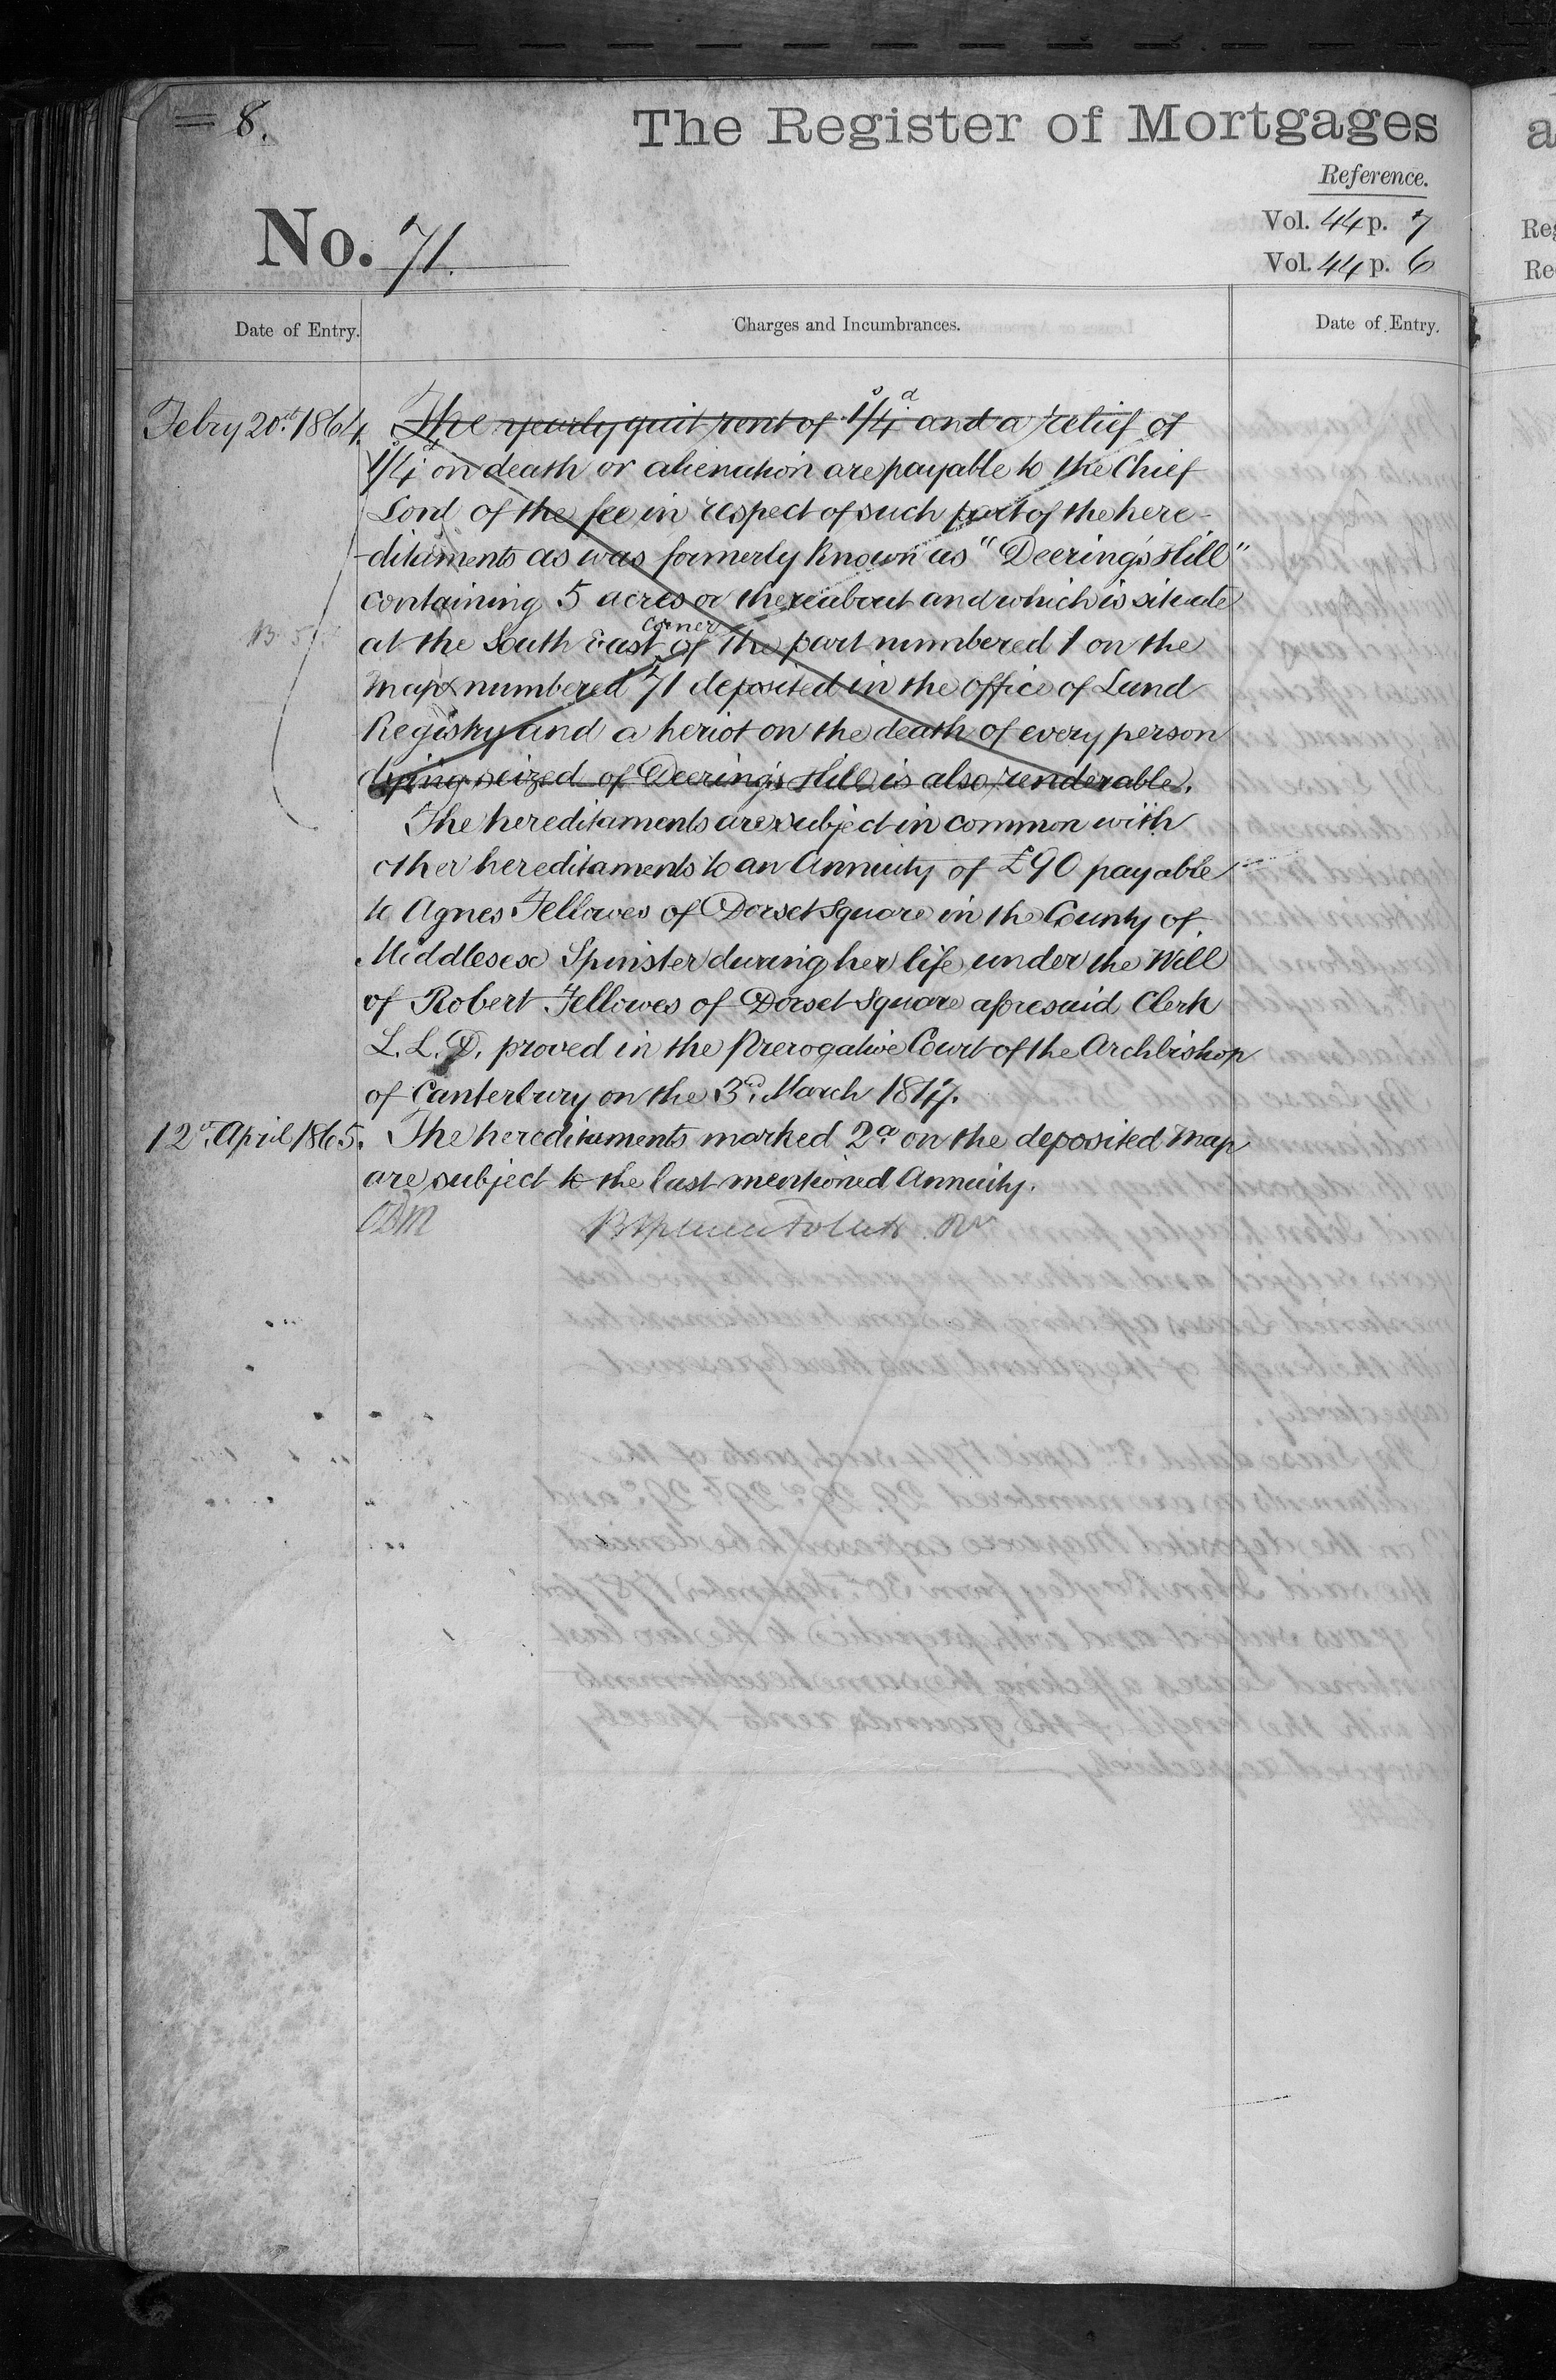 8.
The Register of Mortgages
Reference.
No. 71.
Vol. 44 p. 7
Vol. 44 p. 6
Date of Entry.
Charges and Incumbrances.
Date of Entry.
Febry 20th 1864. The yearly quit rent of 1s/4d and a relief of
1s/4d on death or alienation are payable to the Chief
Lord of the fee in respect of such part of the here-
-ditaments as was formerly known as "Deering's Hill"
containing 5 acres or thereabout and which is situate
at the South East corner of the part numbered 1 on the
map numbered 71 deposited in the office of Land
Registry and a heriot on the death of every person
dying seized of Deering's Hill is also renderable.
The hereditaments are subject in common with
other hereditaments to an Annuity of £90 payable
to Agnes Fellowes of Dorset Square in the County of
Middlesex Spinster during her life under the Will
of Robert Fellowes of Dorset Square aforesaid Clerk
L.L.D. proved in the Prerogative Court of the Archbishop
of Canterbury on the 3rd March 1847.
12th April 1865. The hereditaments marked 2a on the deposited map
are subject to the last mentioned Annuity.
a
Reg
Re